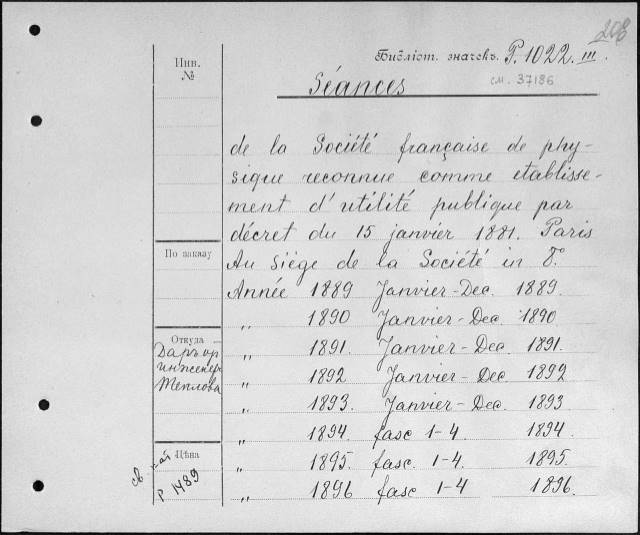 208
Библіот. значекъ P. 1022. III.
Инв.
№
см. 37186
Séances
de la Société française de phy-
sique reconnue comme etablisse-
ment d'utilité publique par
décret du 15 janvier 1881. Paris
По заказу
Au siége de la Société in 8.
Année 1889 Janvier-Dec. 1889.
„ 1890 Janvier-Dec. 1890
Откуда
Даръ
инженера
Теплова
„ 1891. Janvier-Dec. 1891.
„ 1892 Janvier-Dec 1892
„ 1893. Janvier-Dec. 1893
„ 1894. fasc 1-4. 1894.
Цѣна
„ 1895. fasc. 1-4. 1895.
„ 1896 fasc 1-4 1896.
св
P 1489